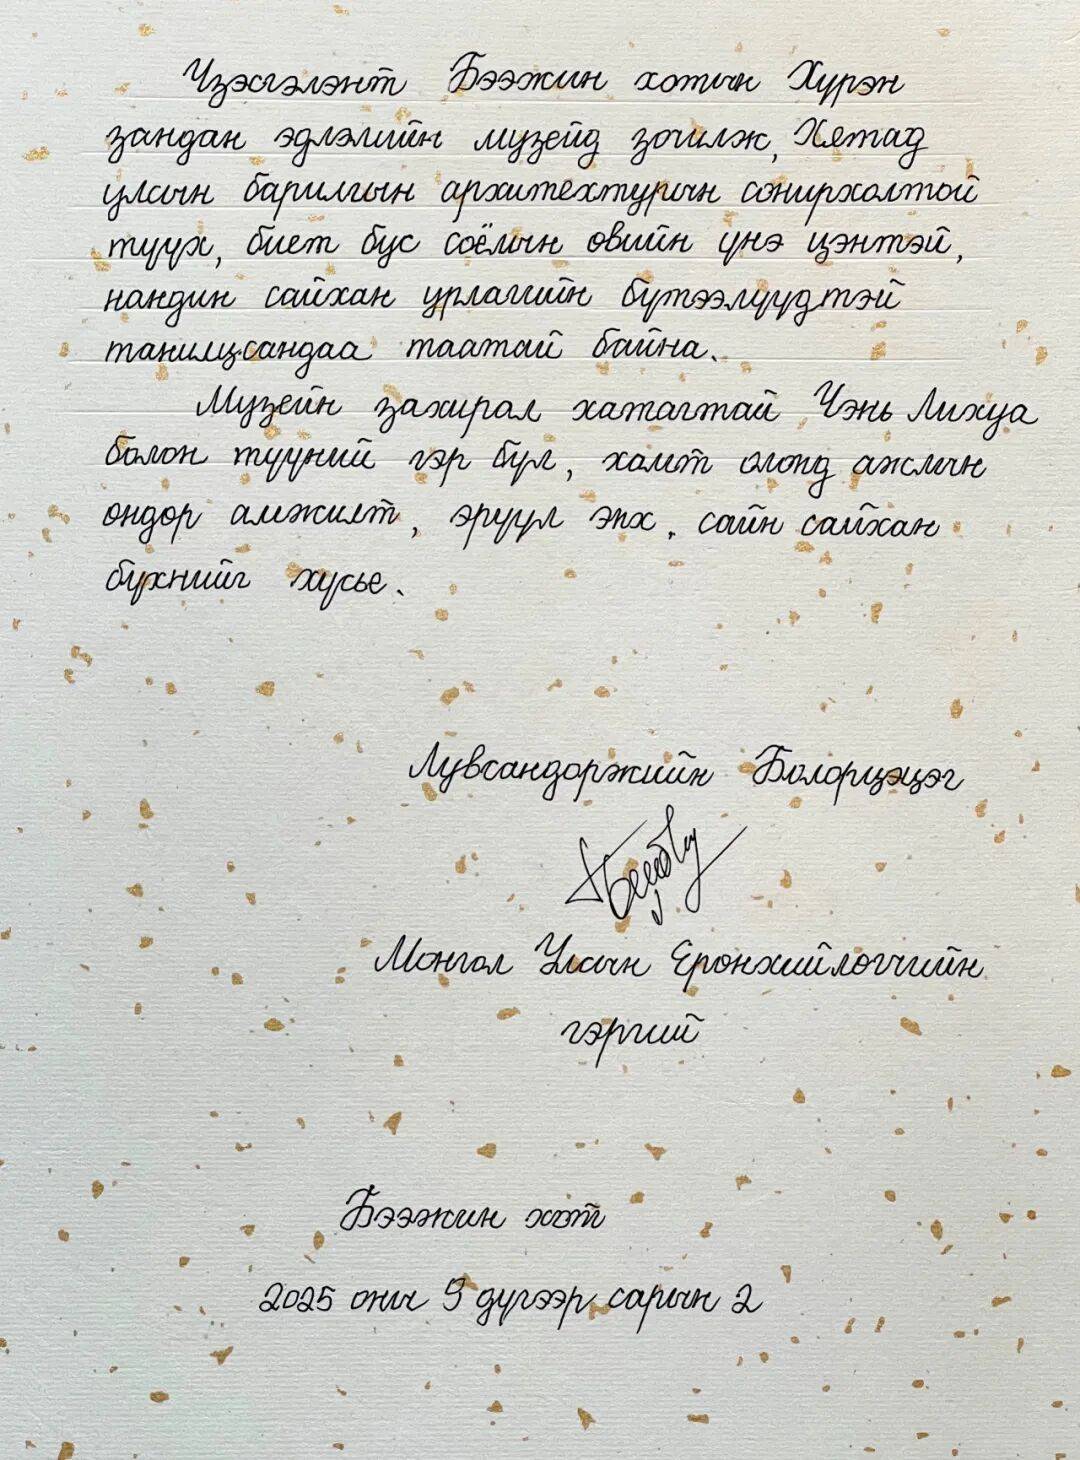 Үзэсгэлэнт Бээжин хотын Хүрэн
зандан эдлэлийн музейд зочилж, Хятад
улсын барилгын архитехтурын сонирхолтой
түүх, биет бус соёлын өвийн үнэ цэнтэй,
нандин сайхан урлагийн бүтээлүүдтэй
танилцсандаа таатай байна.
Музейн захирал хатагтай Чэнь Лихуа
болон түүний гэр бүл, хамт олонд ажлын
өндөр амжилт, эрүүл энх, сайн сайхан
бүхнийг хүсье.
Лувсандоржийн Болорцэцэг
Монгол Улсын Ерөнхийлөгчийн
гэргий
Бээжин хот
2025 оны 9 дүгээр сарын 2